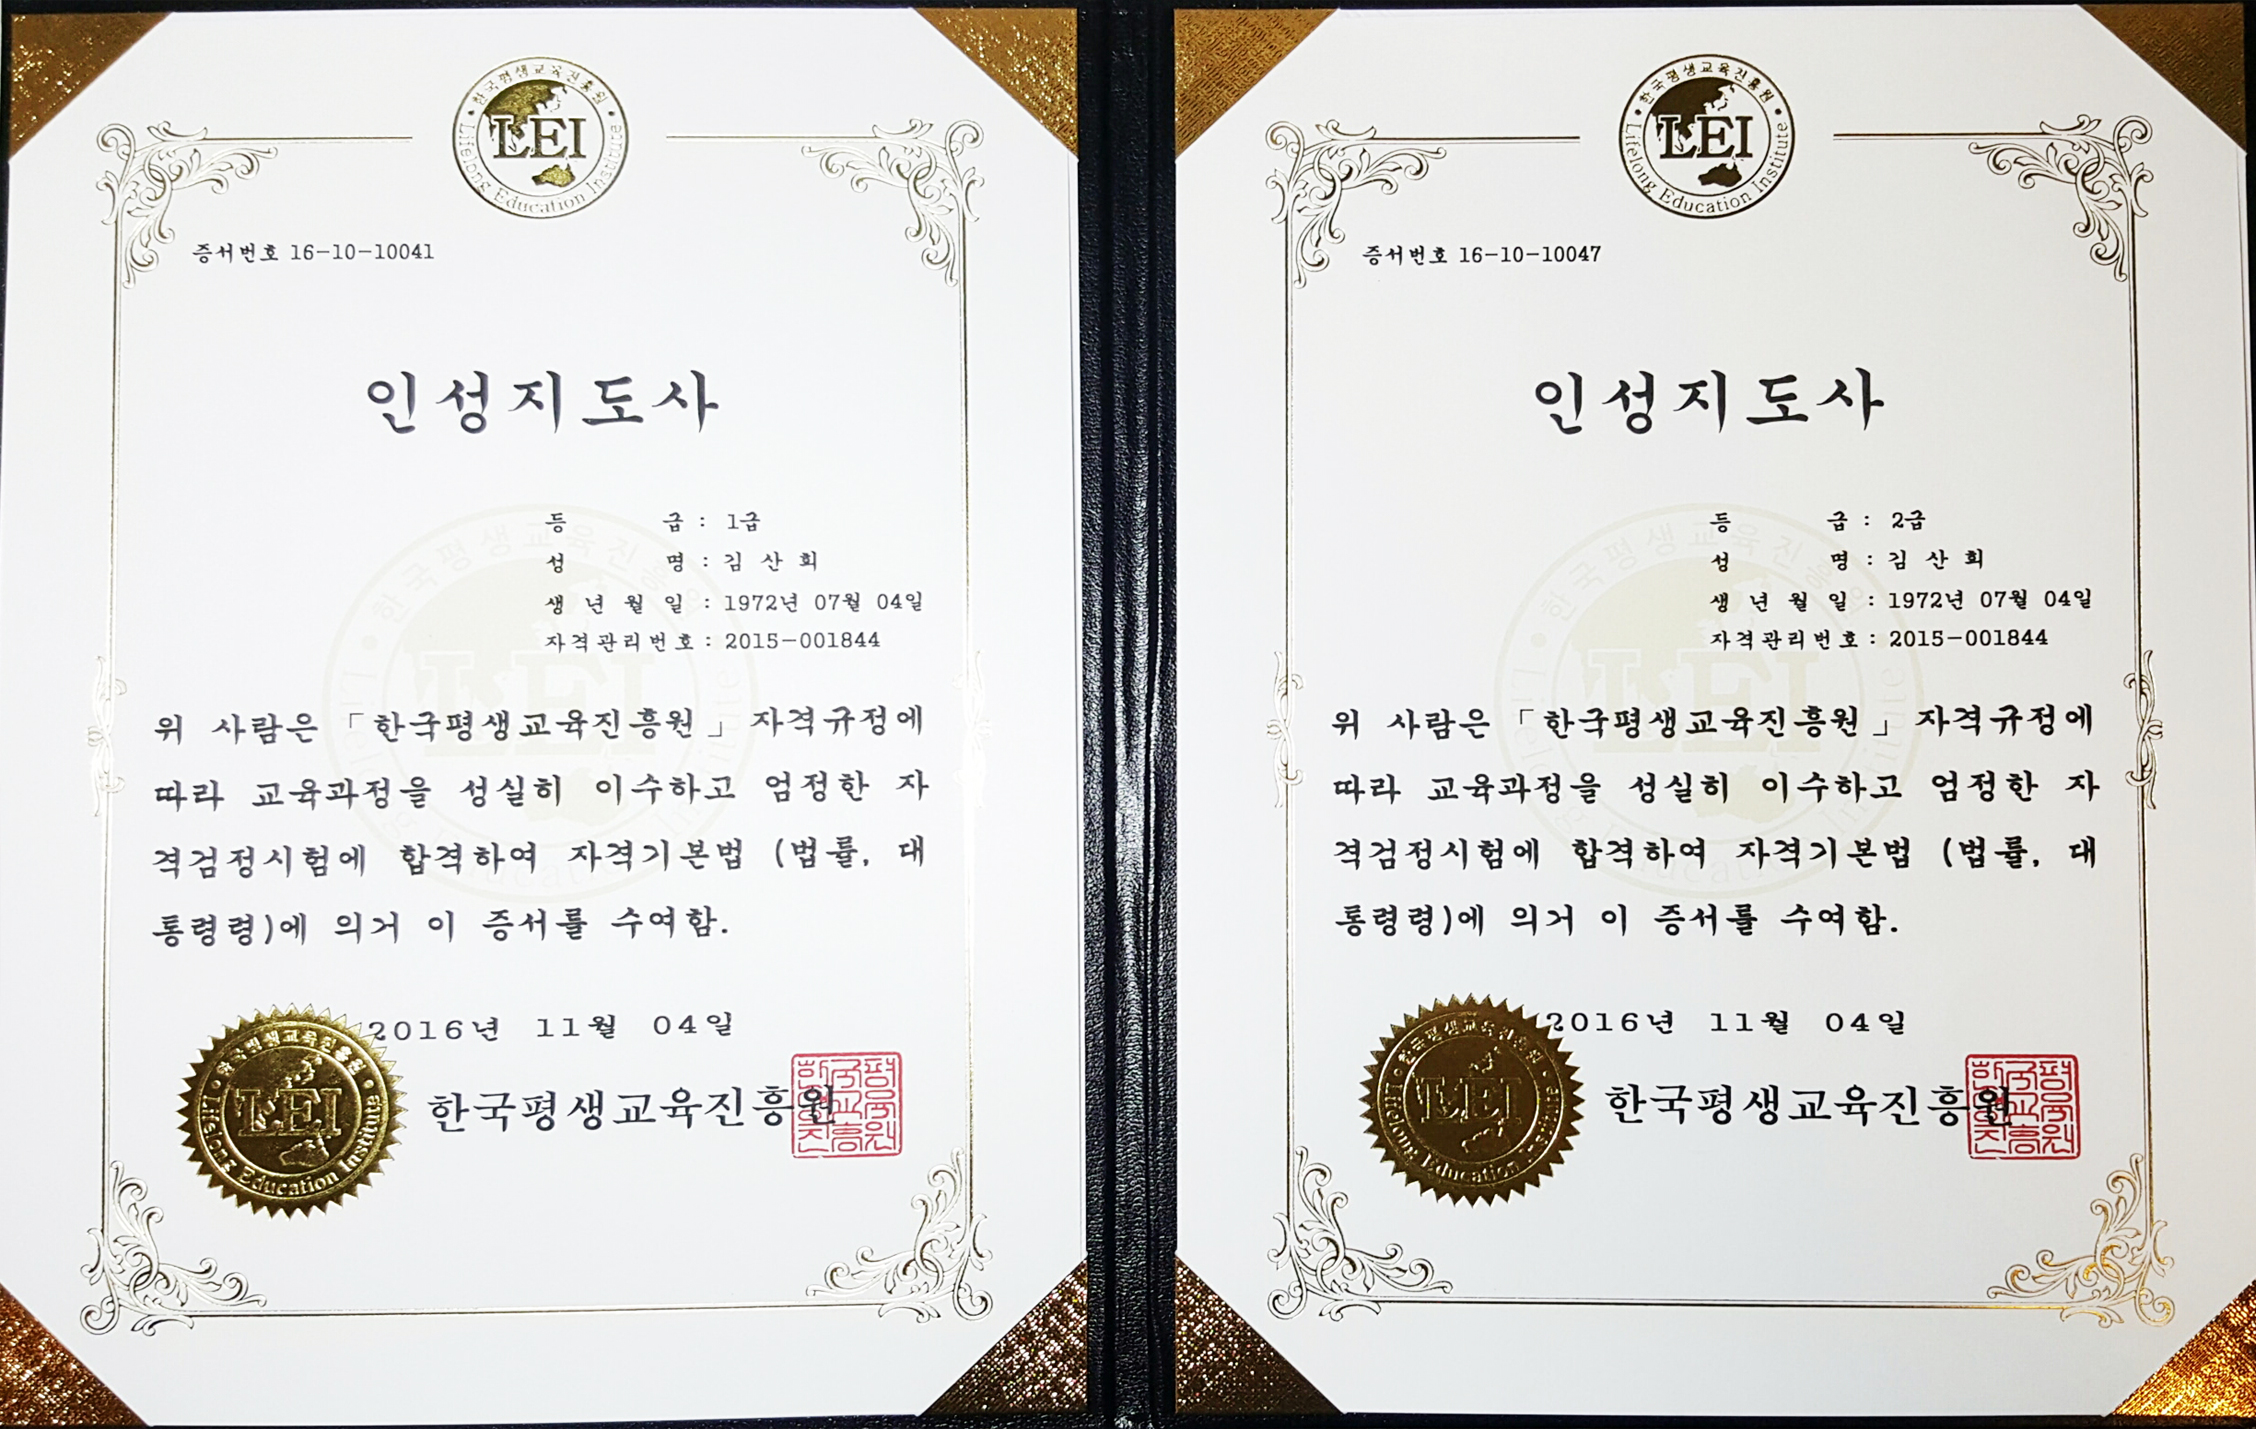 한국평생교육진흥원
LEI
Lifelong Education Institute
증서번호 16-10-10041
인성지도사
등 급 : 1급
성 명 : 김 산 회
생 년 월 일 : 1972년 07월 04일
자격관리번호 : 2015-001844
위 사람은 「한국평생교육진흥원」자격규정에
따라 교육과정을 성실히 이수하고 엄정한 자
격검정시험에 합격하여 자격기본법 (법률, 대
통령령)에 의거 이 증서를 수여함.
2016년 11월 04일
한국평생교육진흥원
한국평생교육진흥원
LEI
Lifelong Education Institute
한국평생교육진흥원
LEI
Lifelong Education Institute
증서번호 16-10-10047
인성지도사
등 급 : 2급
성 명 : 김 산 회
생 년 월 일 : 1972년 07월 04일
자격관리번호 : 2015-001844
위 사람은 「한국평생교육진흥원」자격규정에
따라 교육과정을 성실히 이수하고 엄정한 자
격검정시험에 합격하여 자격기본법 (법률, 대
통령령)에 의거 이 증서를 수여함.
2016년 11월 04일
한국평생교육진흥원
한국평생교육진흥원
LEI
Lifelong Education Institute